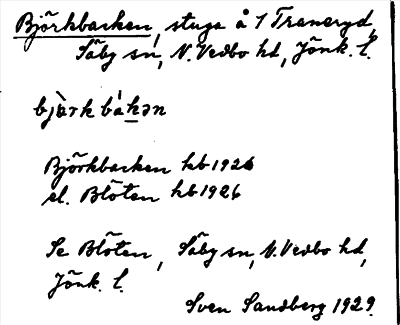 Björkbacken, stuga å 1 Traneryd,
Säby sn, N. Vedbo hd, Jönk. l.
bjàrk bákən
Björkbacken hb 1926
el. Blöten hb 1926
Se Blöten, Säby sn, N. Vedbo hd,
Jönk. l.
Sven Sandberg 1929.